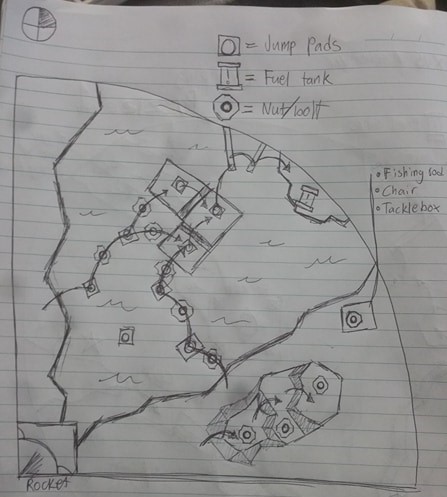 = Jump Pads
= Fuel tank
= Nut/bolt
• Fishing rod
• Chair
• Tacklebox
ROCKET